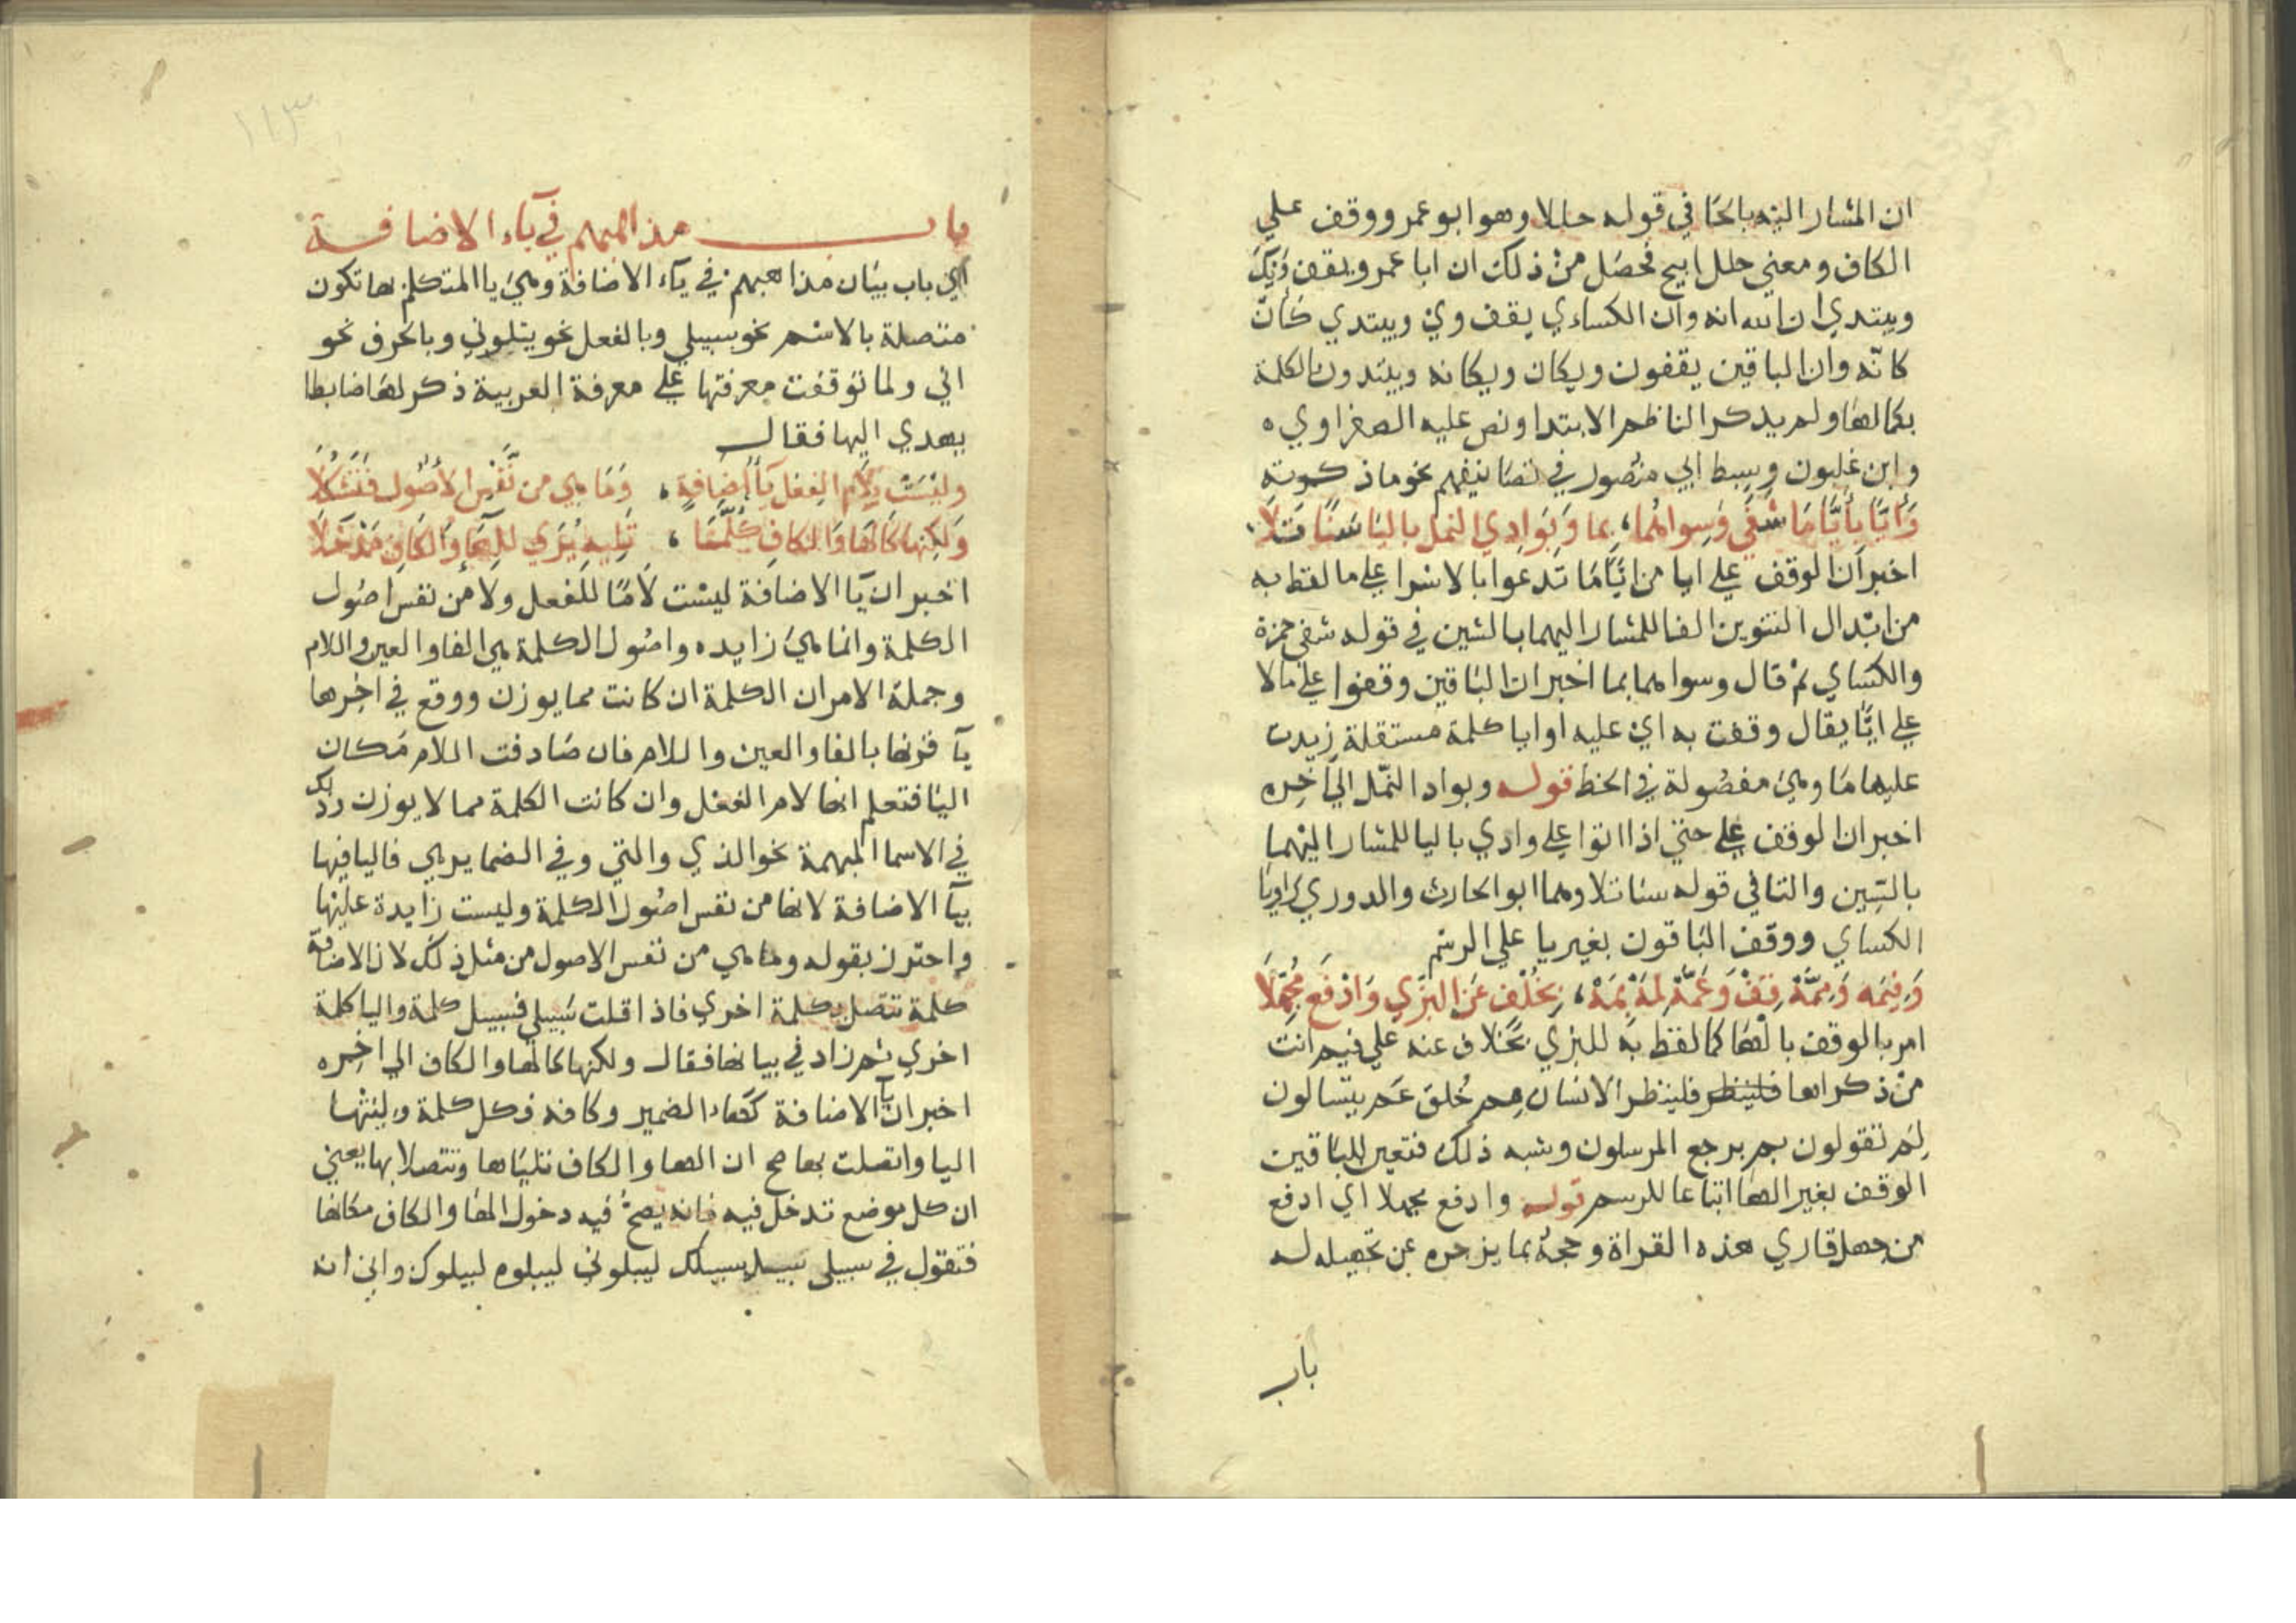 ان المشار اليه بالحا في قوله حللا وهو ابو عمرو وقف علي
الكاف ومعني حلل ابيح فحصل من ذلك ان ابا عمرو يقف ويك
ويبتدي ان الله انه وان الكساءي يقف وي ويبتدي كأنّ
كانّه وان الباقين يقفون ويكان ويكانه ويبتدون الكلمة
بكمالها ولم يذكر الناظم الابتدا ونص عليه الصفراوي ه
وابن غلبون وسبط ابي منصور في تصانيفهم نحو ما ذكرته
وَأَيًّا بِأَيًّا مَا شَفَى وَسِواهُما، بِما وَبِوَادِي النمل باليا سَنًا تَلَا،
اخبر ان الوقف علي ايا من ايًّا مّا تدعوا بالاسرا علي ما لفظ به
من ابدال التنوين الفا للمشار اليهما بالشين في قوله شفي حمزة
والكساي ثم قال وسواهما بما اخبر ان الباقين وقفوا علي ما لا
علي ايًّا يقال وقفت به اي عليه او ايا كلمة مستقلة زيدت
عليها ما وهي مفصولة في الخط قوله وبواد النّمل الي آخره
اخبر ان الوقف علي حتي اذا اتوا علي وادي باليا للمشار اليهما
بالسّين والتا في قوله سنا تلا وهما ابو الحارث والدوري راويا
الكساي ووقف الباقون بغير يا علي الرسم
وَفِيمَه وَمِمَّهْ قِفْ وَعَمَّهْ لِمَهْ بِمَهْ، بِخُلْفٍ عَنِ البَزِّي وَادْفَع مُجَهِّلَا
امر بالوقف بالها كما لفظ به للبزي بخلاف عنه علي فيم انت
من ذكراها فلينظر فلينظر الانسان مِم خُلق عَم يتسالون
لِم تقولون بم يرجع المرسلون وشبه ذلك فتعين للباقين
الوقف بغير الها اتباعا للرسم قوله وادفع مجهلا اي ادفع
من جهل قاري هذه القراة وحجه بما يزجره عن تجهيله له
باب
١١٣
باب مذاهبهم في ياء الاضافة
اي باب بيان مذاهبهم في ياء الاضافة وهي يا المتكلم بها تكون
متصلة بالاسم نحو سبيلي وبالفعل نحو يبلوني وبالحرف نحو
اني ولما توقفت معرفتها علي معرفة العربية ذكر لها ضابطا
يهدي اليها فقال
وليْسَتْ بِلَامِ الفِعْلِ يَاُ إضَافةٍ، وَمَا هي من نَّفْسِ الأُصُول فَتُشْكِلَا
وَلكِنها كَالهَا وَالكافِ كُلُّمَا، تَلِيهِ يُرَي لِلهَاءِ وَالكَافِ مَدْخَلَا
اخبر ان يا الاضافة ليست لامًا للفعل ولا من نفس اصول
الكلمة وانما هي زايده واصول الكلمة هي الفا والعين واللام
وجملة الامر ان الكلمة ان كانت مما يوزن ووقع في اخرها
يآ قرنها بالفا والعين واللام فان صادفت اللام مكان
اليا فتعلم انها لام الفعل وان كانت الكلمة مما لا يوزن وذلك
في الاسما المبهمة نحو الذي والتي وفي الضماير هي فاليا فيها
بيا الاضافة لانها من نفس اصول الكلمة وليست زايدة عليها
واحترز بقوله وما هي من نفس الاصول من مثل ذلك لان الاضافة
كلمة تتصل بكلمة اخري فاذا قلت سَبيلي فسبيل كلمة واليا كلمة
اخري ثم زاد في بيانها فقال ولكنها كالها والكاف الي اخره
اخبر ان يا الاضافة كهاء الضمير وكافه فكل كلمة وليتها
اليا واتصلت بها صح ان الها والكاف تليانها وتتصلا بها يعني
ان كل موضع تدخل فيه فانه يصحُّ فيه دخول الها والكاف مكانها
فتقول في سبيلي سبيله سبيلك ليبلوني ليبلوه ليبلوك واني انه